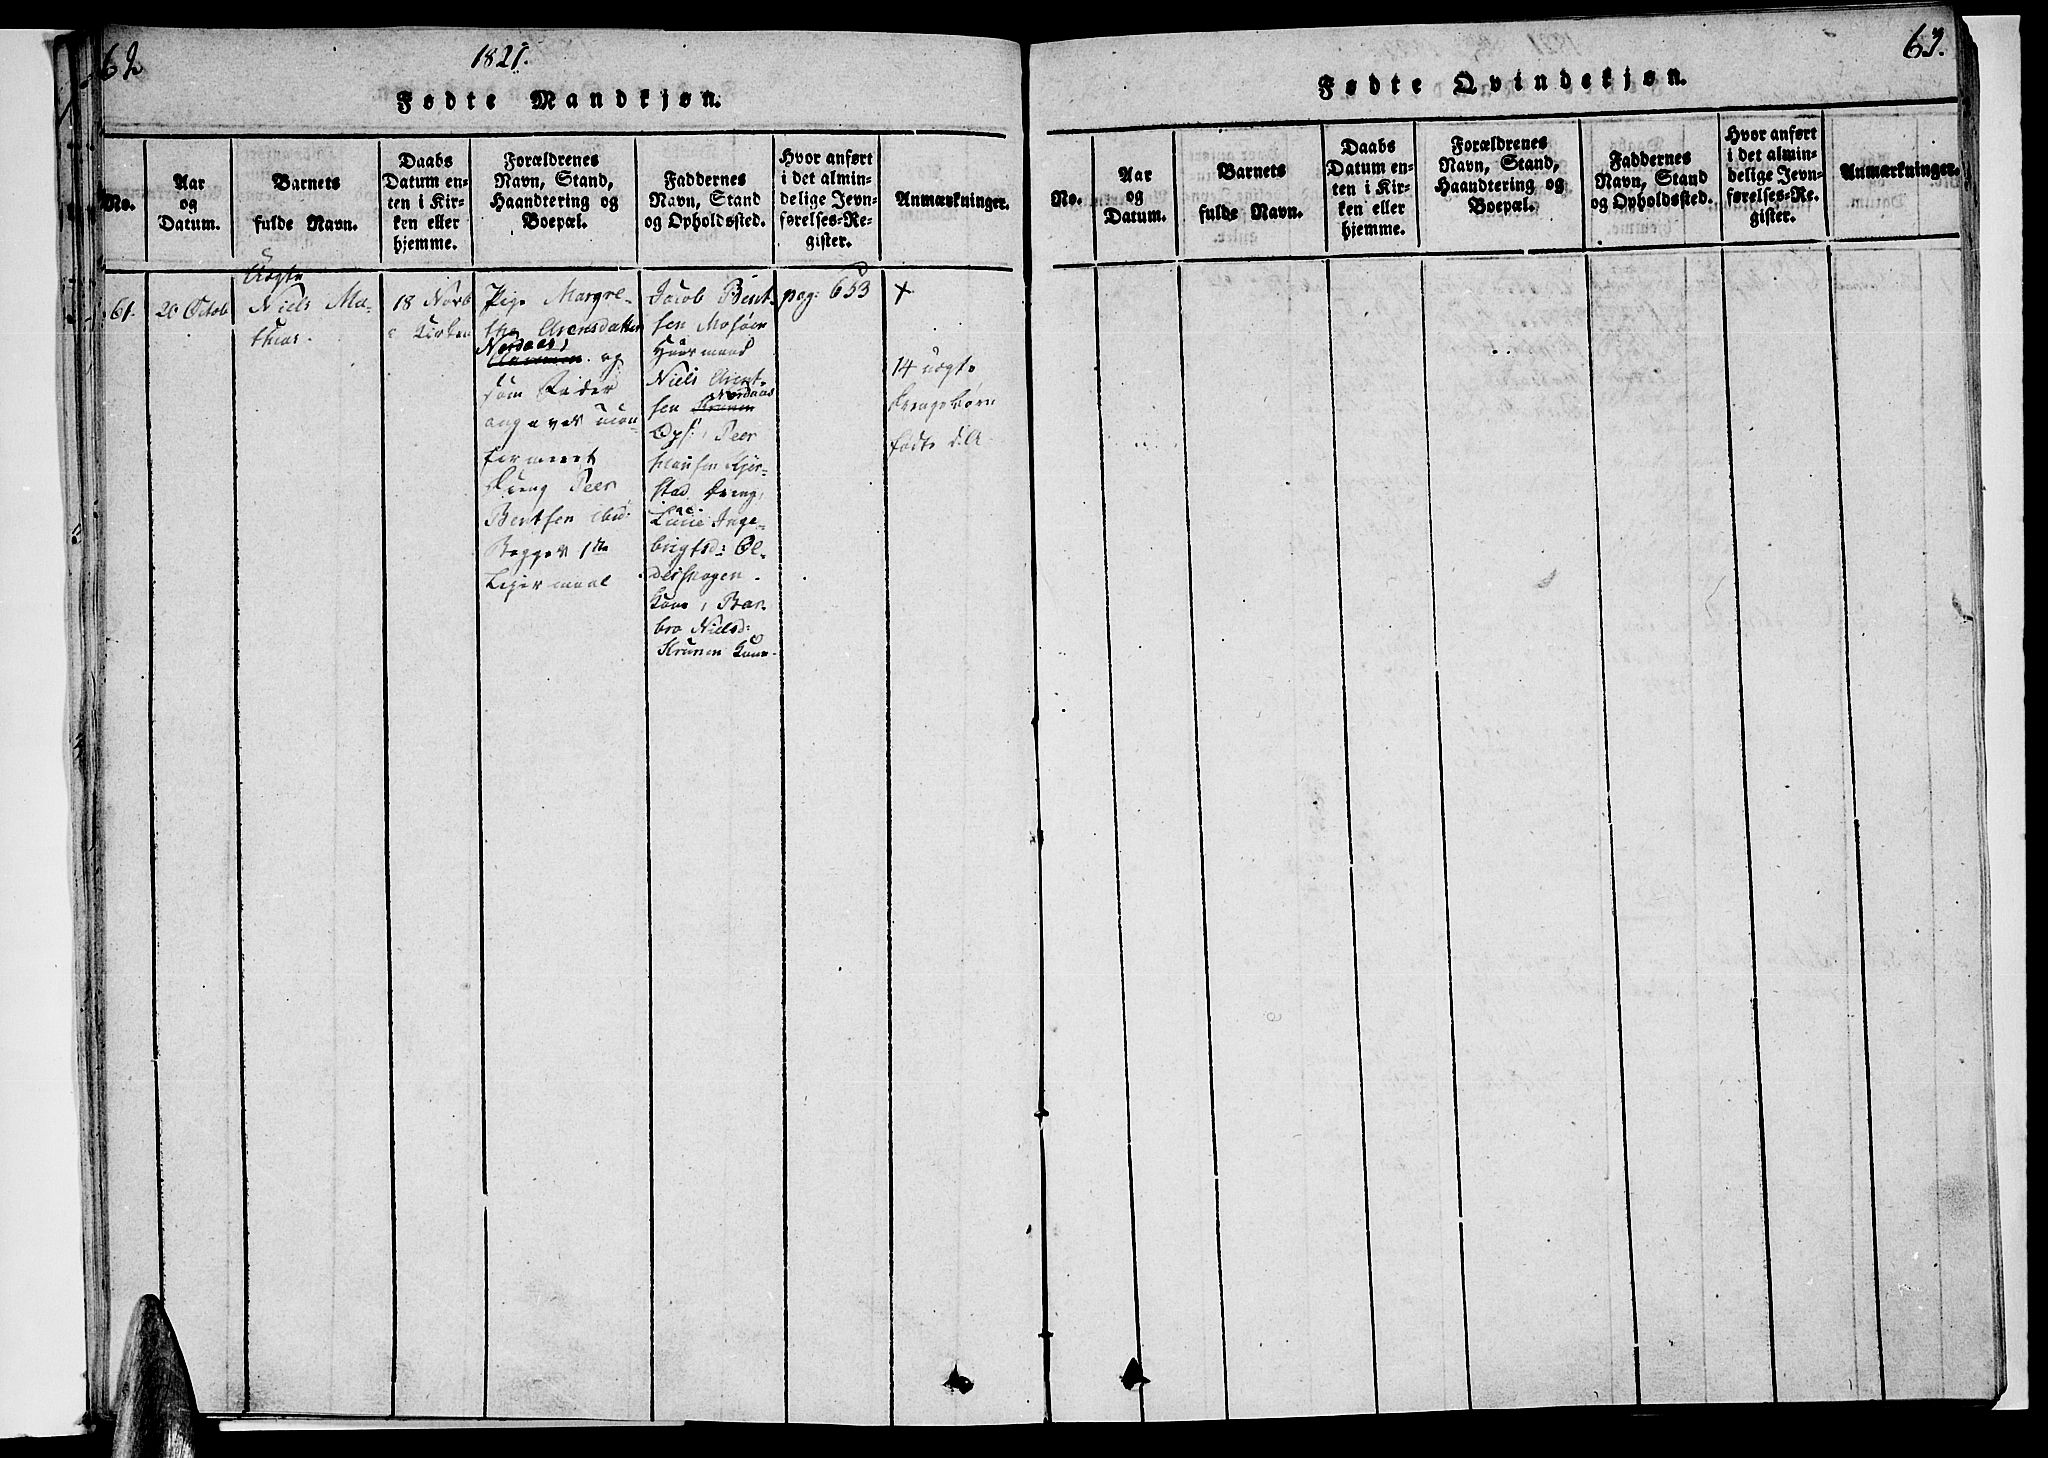 62
1821.
Fødte Mandkjøn.
No.
Aar
og
Datum.
Barnets
fulde Navn.
Daabs
Datum en-
ten i Kir-
ken eller
hjemme.
Forældrenes
Navn, Stand,
Haandtering og
Boepæl.
Faddernes
Navn, Stand
og Opholdssted.
Hvor anført
i det almin-
delige Jevn-
førelses-Re-
gister.
Anmærkninger.
61.
20 Octob
Uægte
Niels Ma-
thias.
18 Novb
i Kirken
Pige Margre-
the Arensdatter
Nordaas,
og
som Fader
angaves ucon-
firmeret
Dreng Peer
Bentsen ibid:
Begges 1ste
Leiermaal
Jacob Bent-
sen Mosøen
Huusmand
Niels Arent-
Nordaas
sen Krunen
Ops:, Peer
Hansen Kjer-
stad Dreng,
Lucie Inge-
brigtsd: Ol-
derskogen
Kone, Bar-
bro Nielsd:
Krunen Kone
pag: 653
+
14 uægte
Drengebørn
fødte d: A
63.
Fødte Qvindekjøn.
No.
Aar
og
Datum.
Barnets
fulde Navn.
Daabs
Datum en-
ten i Kir-
ken eller
hjemme.
Forældrenes
Navn, Stand,
Haandtering og
Boepæl.
Faddernes
Navn, Stand
og Opholdssted.
Hvor anført
i det almin-
delige Jevn-
førelses-Re-
gister.
Anmærkninger.